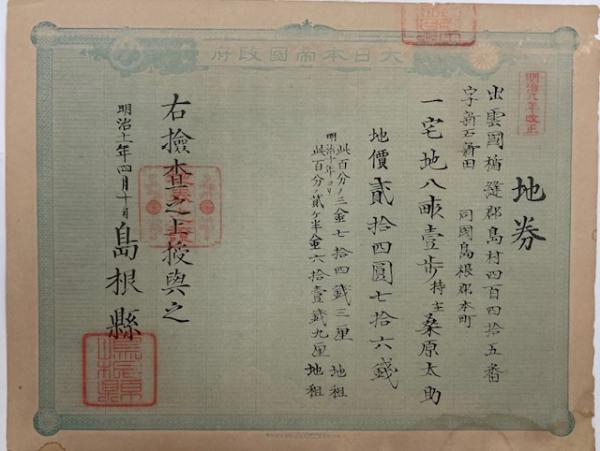 大日本帝國政府
明治八年改正
地券
出雲國楯縫郡島村四百四拾五番
字新石新田 同國島根郡本町
一宅地八畝壹歩 持主 桑原太助
地價貳拾四圓七拾六錢
此百分ノ三金七拾四錢三厘 地租
明治十年ヨリ
此百分ノ貳ケ半金六拾壹錢九厘 地租
右撿查之上授與之
明治十一年四月十日 島根縣